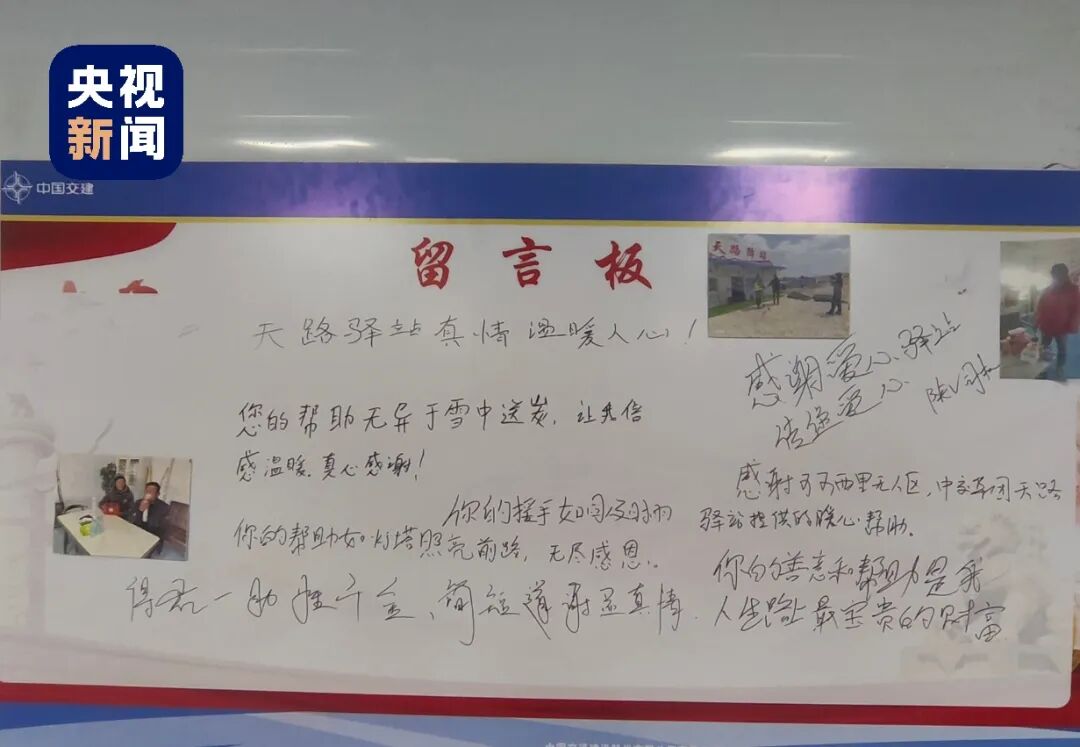 央视
新闻
中国交建
留言板
天路驿站
天路驿站真情温暖人心！
感谢爱心驿站
传递爱心
您的帮助无异于雪中送炭，让我倍
感温暖，真心感谢！
你的援手如同及时雨
你的帮助如灯塔照亮前路，无尽感恩。
得君一助胜千金、简短道谢显真情.
感谢可可西里无人区，中交集团天路
驿站提供的暖心帮助.
你的善意和帮助力是我
人生路上最宝贵的财富